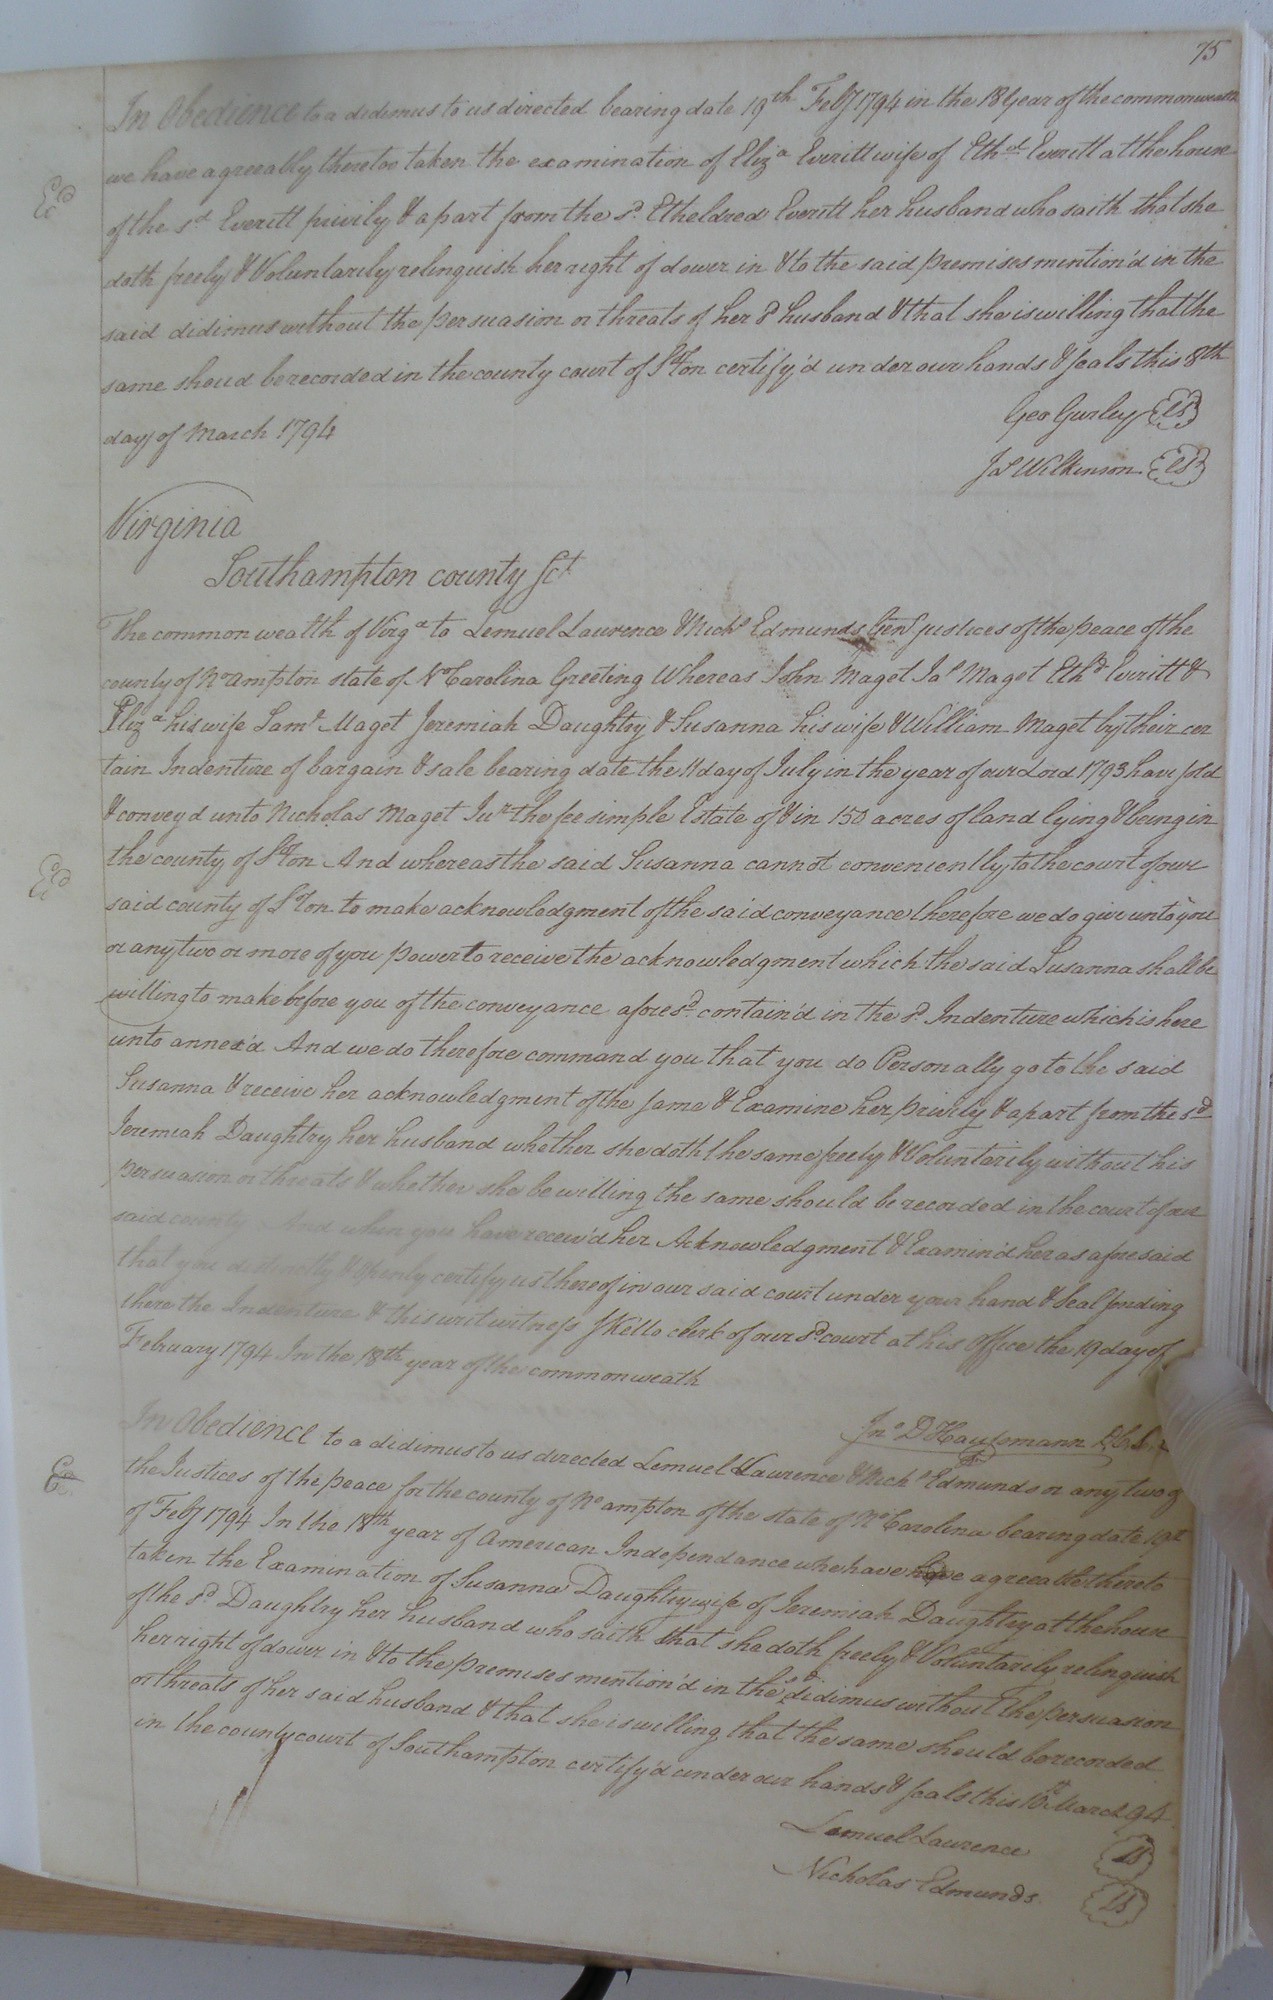 75
In Obedience to a didimus to us directed bearing date 19th Feby 1794 in the 18 year of the commonwealth
we have agreeably thereto taken the examination of Eliza Everitt wife of Ethd Everitt at the house
of the sd Everitt privily & apart from the sd Etheldred Everitt her husband who saith that she
doth freely & Voluntarily relinquish her right of dower in & to the said premises mention'd in the
said didimus without the persuasion or threats of her sd husband & that she is willing that the
same shoud be recorded in the county court of S°ton certify'd under our hands & seals this 8th
day of March 1794
Geo Gurley LS
Jas Wilkinson LS
Virginia
Southampton county Sct
The common wealth of Virga to Lemuel Laurence & Nichs Edmunds Gent justices of the peace of the
county of No ampton state of No Carolina Greeting Whereas John Maget Jas Maget Ethd Everitt &
Eliza his wife Saml Maget Jeremiah Daughtry & Susanna his wife & William Maget by their cer
tain Indenture of bargain & sale bearing date the 11 day of July in the year of our Lord 1793 have sold
& convey'd unto Nicholas Maget Junr the fee simple Estate of & in 150 acres of land lying & being in
the county of S°ton And whereas the said Susanna cannot conveniently to the court of our
said county of S°ton to make acknowledgment of the said conveyance therefore we do give unto you
or any two or more of you power to receive the acknowledgment which the said Susanna shall be
willing to make before you of the conveyance aforesd contain'd in the sd Indenture which is here
unto annex'd And we do therefore command you that you do Personally go to the said
Susanna & receive her acknowledgment of the same & Examine her privily & apart from the sd
Jeremiah Daughtry her husband whether she doth the same freely & Voluntarily without his
persuasion or threats & whether she be willing the same should be recorded in the court of our
said county And when you have receiv'd her Acknowledgment & Examin'd her as aforesaid
that you distinctly & openly certify us thereof in our said court under your hand & Seal sending
there the Indenture & this writ witness S Kello clerk of our sd court at his office the 19 day of
February 1794 In the 18th year of the commonweath
Jno D Haussmann D.C.S.
In Obedience to a didimus to us directed Lemuel Laurence & Nichs Edmunds or any two of
the Justices of the peace for the county of No ampton of the state of No Carolina bearing date 19th
of Feby 1794 In the 18th year of American Independance who have agreeable thereto
taken the Examination of Susanna Daughtry wife of Jeremiah Daughtry at the house
of the sd Daughtry her husband who saith that she doth freely & Voluntarily relinquish
her right of dower in & to the premises mention'd in the sd didimus without the persuasion
or threats of her said husband & that she is willing that the same should be recorded
in the county court of Southampton certify'd under our hands & seals this 10th March 94
Lemuel Laurence LS
Nicholas Edmunds LS